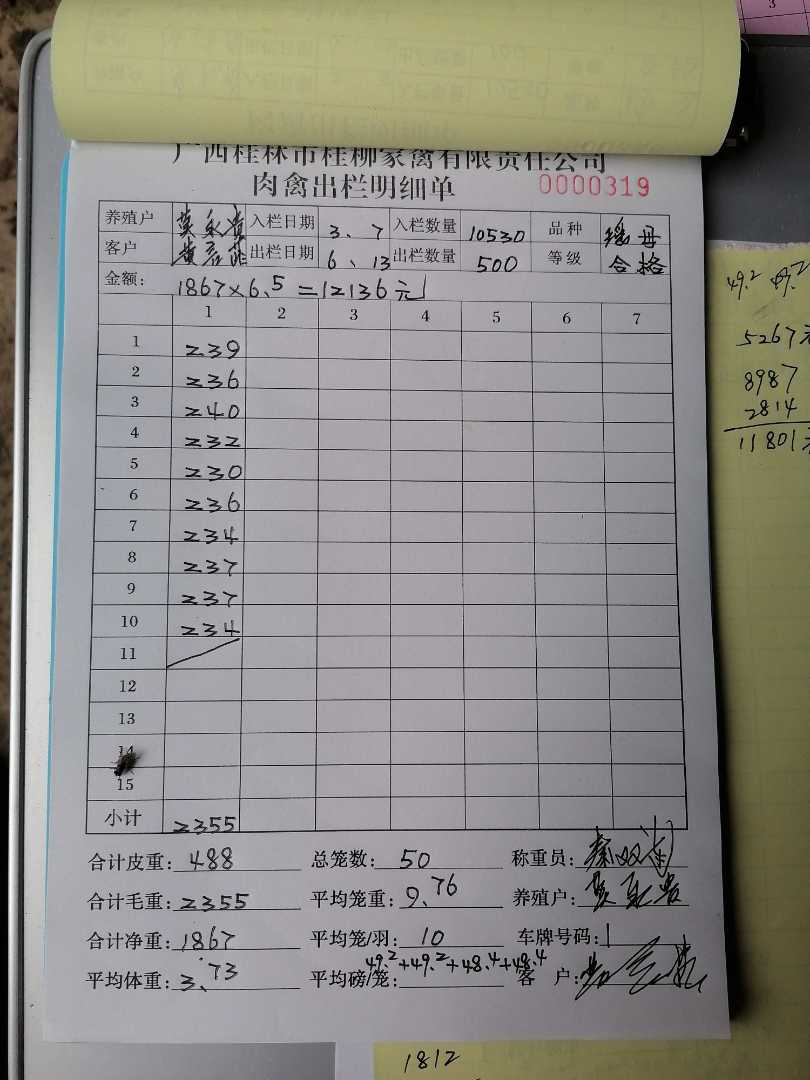 广西桂林市桂柳家禽有限责任公司
肉禽出栏明细单 0000319
养殖户 入栏日期 3、7 入栏数量 10530 品种 瑶母
客户 出栏日期 6、13 出栏数量 500 等级 合格
金额: 1867×6.5=12136元
1 2 3 4 5 6 7
1 239
2 236
3 240
4 232
5 230
6 236
7 234
8 237
9 237
10 234
11
12
13
14
15
小计 2355
合计皮重: 488 总笼数: 50 称重员:
合计毛重: 2355 平均笼重: 9.76 养殖户:
合计净重: 1867 平均笼/羽: 10 车牌号码:
平均体重: 3.73 平均磅/笼: 49.2+49.2+48.4+48.4 客户:
49.2 49.2
5267元
8987
2814
11801元
1812
3